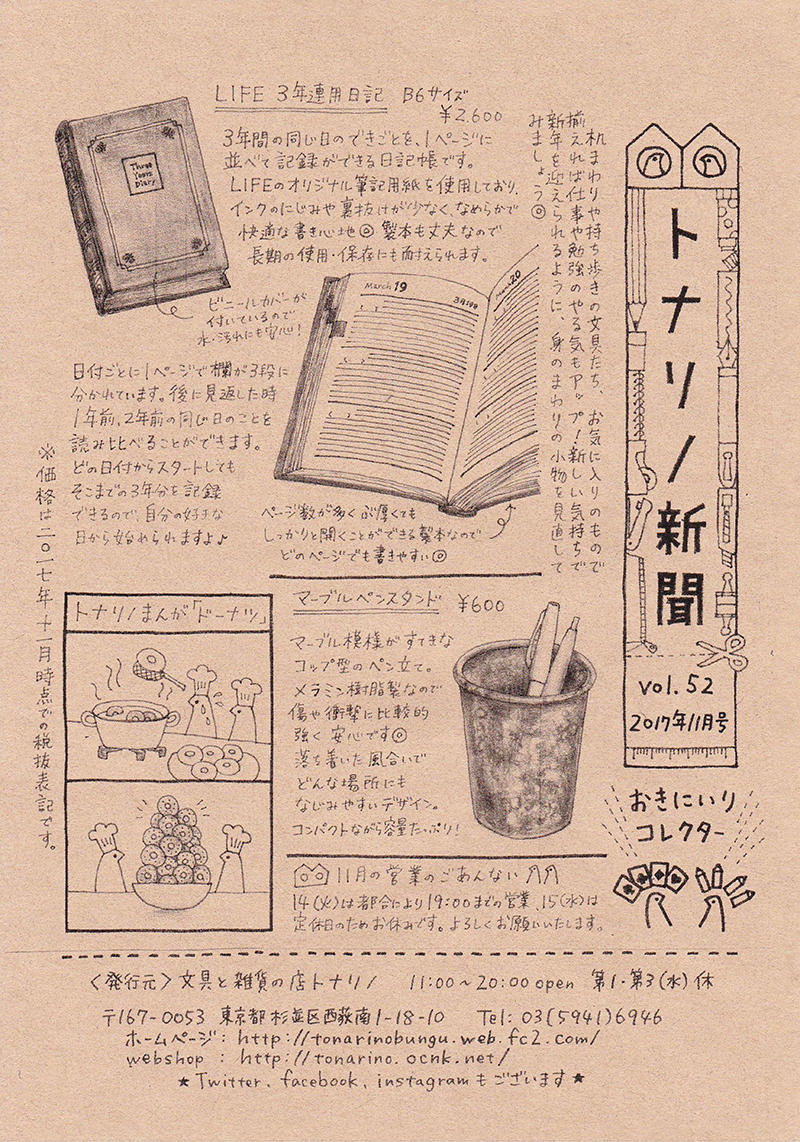 トナリノ新聞
vol.52
2017年11月号
おきにいり
コレクター
机まわりや持ち歩きの文具たち、お気に入りのもので
揃えれば仕事や勉強のやる気もアップ!新しい気持ちで
新年を迎えられるように、身のまわりの小物を見直して
みましょう◎
LIFE 3年連用日記 B6サイズ
¥2,600
3年間の同じ日のできごとを、1ページに
並べて記録ができる日記帳です。
LIFEのオリジナル筆記用紙を使用しており、
インクのにじみや裏抜けが少なく、なめらかで
快適な書き心地◎ 製本も丈夫なので
長期の使用・保存にも耐えられます。
Three
Years
Diary
ビニールカバーが
付いているので
水・汚れにも安心!
March 19
3月19日
March 20
日付ごとに1ページで欄が3段に
分かれています。後に見返した時
1年前、2年前の同じ日のことを
読み比べることができます。
どの日付からスタートしても
そこまでの3年分を記録
できるので、自分の好きな
日から始められますよ♪
ページ数が多くぶ厚くても
しっかりと開くことができる製本なので
どのページでも書きやすい◎
※価格は二〇一七年十一月時点での税抜表記です。
トナリノまんが「ドーナツ」
マーブルペンスタンド ¥600
マーブル模様がすてきな
コップ型のペン立て。
メラミン樹脂製なので
傷や衝撃に比較的
強く安心です◎
落ち着いた風合いで
どんな場所にも
なじみやすいデザイン。
コンパクトながら容量たっぷり!
11月の営業のごあんない
14(火)は都合により19:00までの営業、15(水)は
定休日のためお休みです。よろしくお願いいたします。
〈発行元〉文具と雑貨の店トナリノ 11:00~20:00 open 第1・第3(水)休
〒167-0053 東京都杉並区西荻南1-18-10 Tel: 03(5941)6946
ホームページ: http://tonarinobungu.web.fc2.com/
webshop : http://tonarino.ocnk.net/
★Twitter、facebook、instagramもございます★